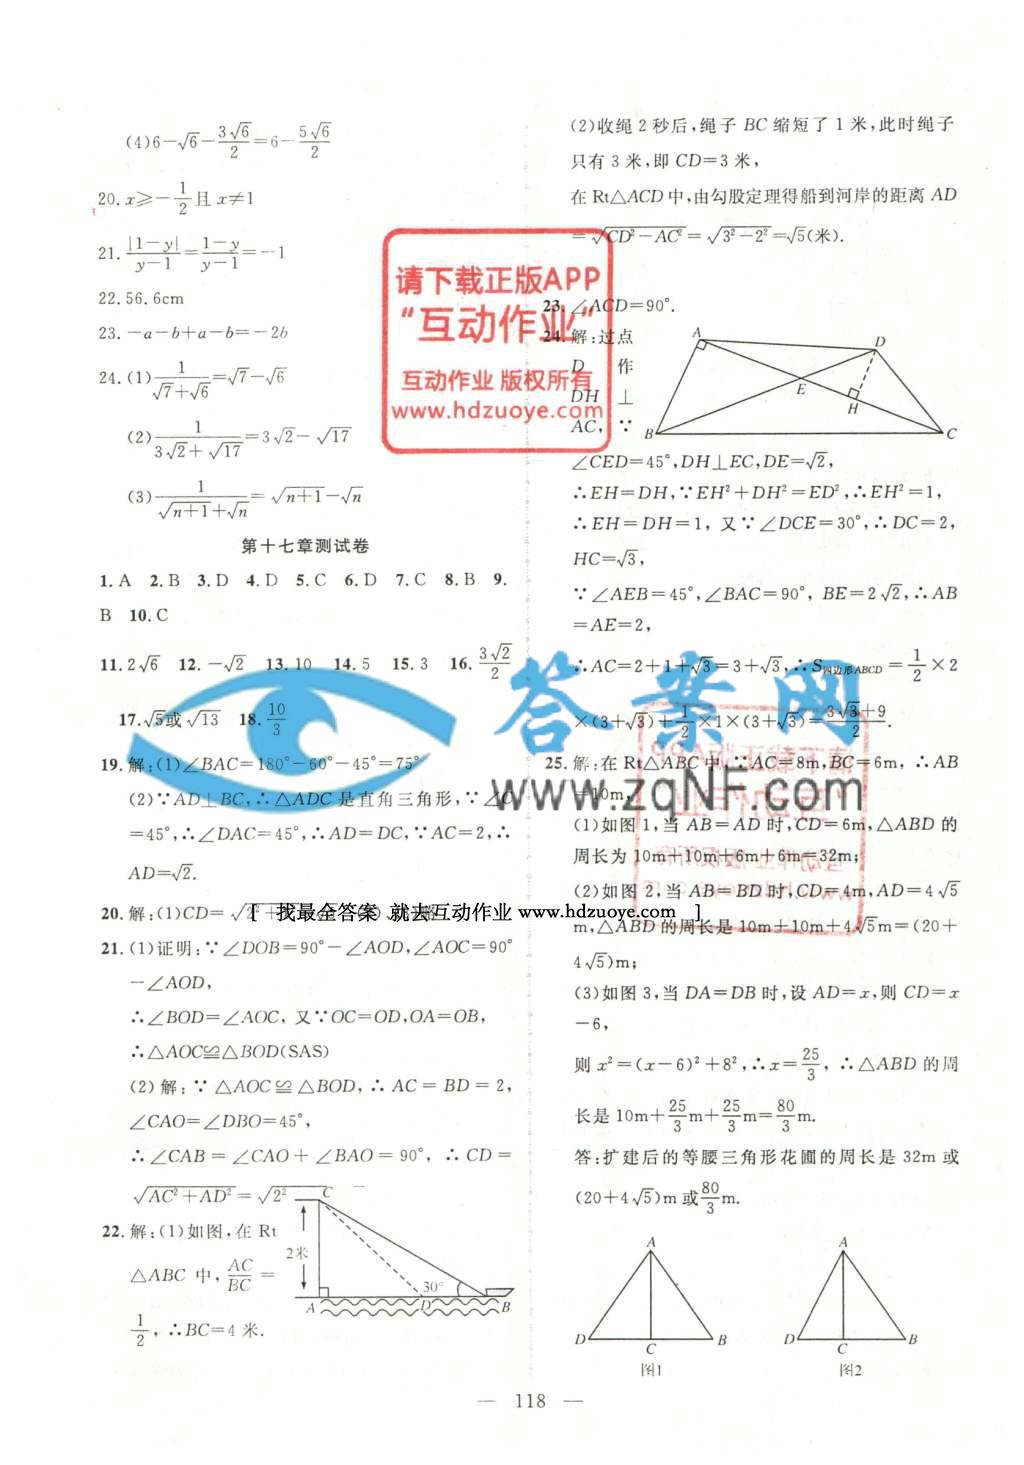 (4)6-√6-3√6/2=6-5√6/2
20.x≥-1/2且 x≠1
21.|1-y|/(y-1)=(1-y)/(y-1)=-1
22.56.6cm
23.-a-b+a-b=-2b
24.(1)1/(√7+√6)=√7-√6
(2)1/(3√2+√17)=3√2-√17
(3)1/(√(n+1)+√n)=√(n+1)-√n
第十七章测试卷
1.A 2.B 3.D 4.D 5.C 6.D 7.C 8.B 9.
B 10.C
11.2√6 12.-√2 13.10 14.5 15.3 16.3√2/2
17.√5或√13 18.10/3
19.解:(1)∠BAC=180°-60°-45°=75°
(2)∵AD⊥BC,∴△ADC是直角三角形,∵∠C
=45°,∴∠DAC=45°,∴AD=DC,∵AC=2,∴
AD=√2.
20.解:(1)CD=
[ 我最全答案 就去互动作业 www.hdzuoye.com ]
21.(1)证明:∵∠DOB=90°-∠AOD,∠AOC=90°
-∠AOD,
∴∠BOD=∠AOC, 又∵OC=OD,OA=OB,
∴△AOC≌△BOD(SAS)
(2)解:∵△AOC≌△BOD,∴AC=BD=2,
∠CAO=∠DBO=45°,
∴∠CAB=∠CAO+∠BAO=90°,∴CD=
√(AC²+AD²)=√2²
22.解:(1)如图,在 Rt
△ABC 中,AC/BC=
1/2,∴BC=4 米.
C
2米
30°
A
D
B
(2)收绳 2 秒后,绳子 BC 缩短了 1 米,此时绳子
只有 3 米,即 CD=3 米,
在 Rt△ACD 中,由勾股定理得船到河岸的距离 AD
=√(CD²-AC²)=√(3²-2²)=√5(米).
23.∠ACD=90°.
24.解:过点
D 作
DH ⊥
AC,∵
A
D
E
H
B
C
∠CED=45°,DH⊥EC,DE=√2,
∴EH=DH,∵EH²+DH²=ED²,∴EH²=1,
∴EH=DH=1, 又∵∠DCE=30°,∴DC=2,
HC=√3,
∵∠AEB=45°,∠BAC=90°, BE=2√2,∴AB
=AE=2,
∴AC=2+1+√3=3+√3,∴S四边形ABCD=1/2×2
×(3+√3)+1/2×1×(3+√3)=(3√3+9)/2.
25.解:在 Rt△ABC 中,∵AC=8m,BC=6m,∴AB
=10m,
(1)如图 1,当 AB=AD 时,CD=6m,△ABD 的
周长为 10m+10m+6m+6m=32m;
(2)如图 2,当 AB=BD 时,CD=4m,AD=4√5
m,△ABD 的周长是 10m+10m+4√5m=(20+
4√5)m;
(3)如图 3,当 DA=DB 时,设 AD=x,则 CD=x
-6,
则 x²=(x-6)²+8²,∴x=25/3, ∴△ABD 的周
长是 10m+25/3m+25/3m=80/3m.
答:扩建后的等腰三角形花圃的周长是 32m 或
(20+4√5)m 或80/3m.
A
D
C
B
图1
A
D
C
B
图2
— 118 —
请下载正版APP
“互动作业”
互动作业 版权所有
www.hdzuoye.com
答案网
www.zqNF.com